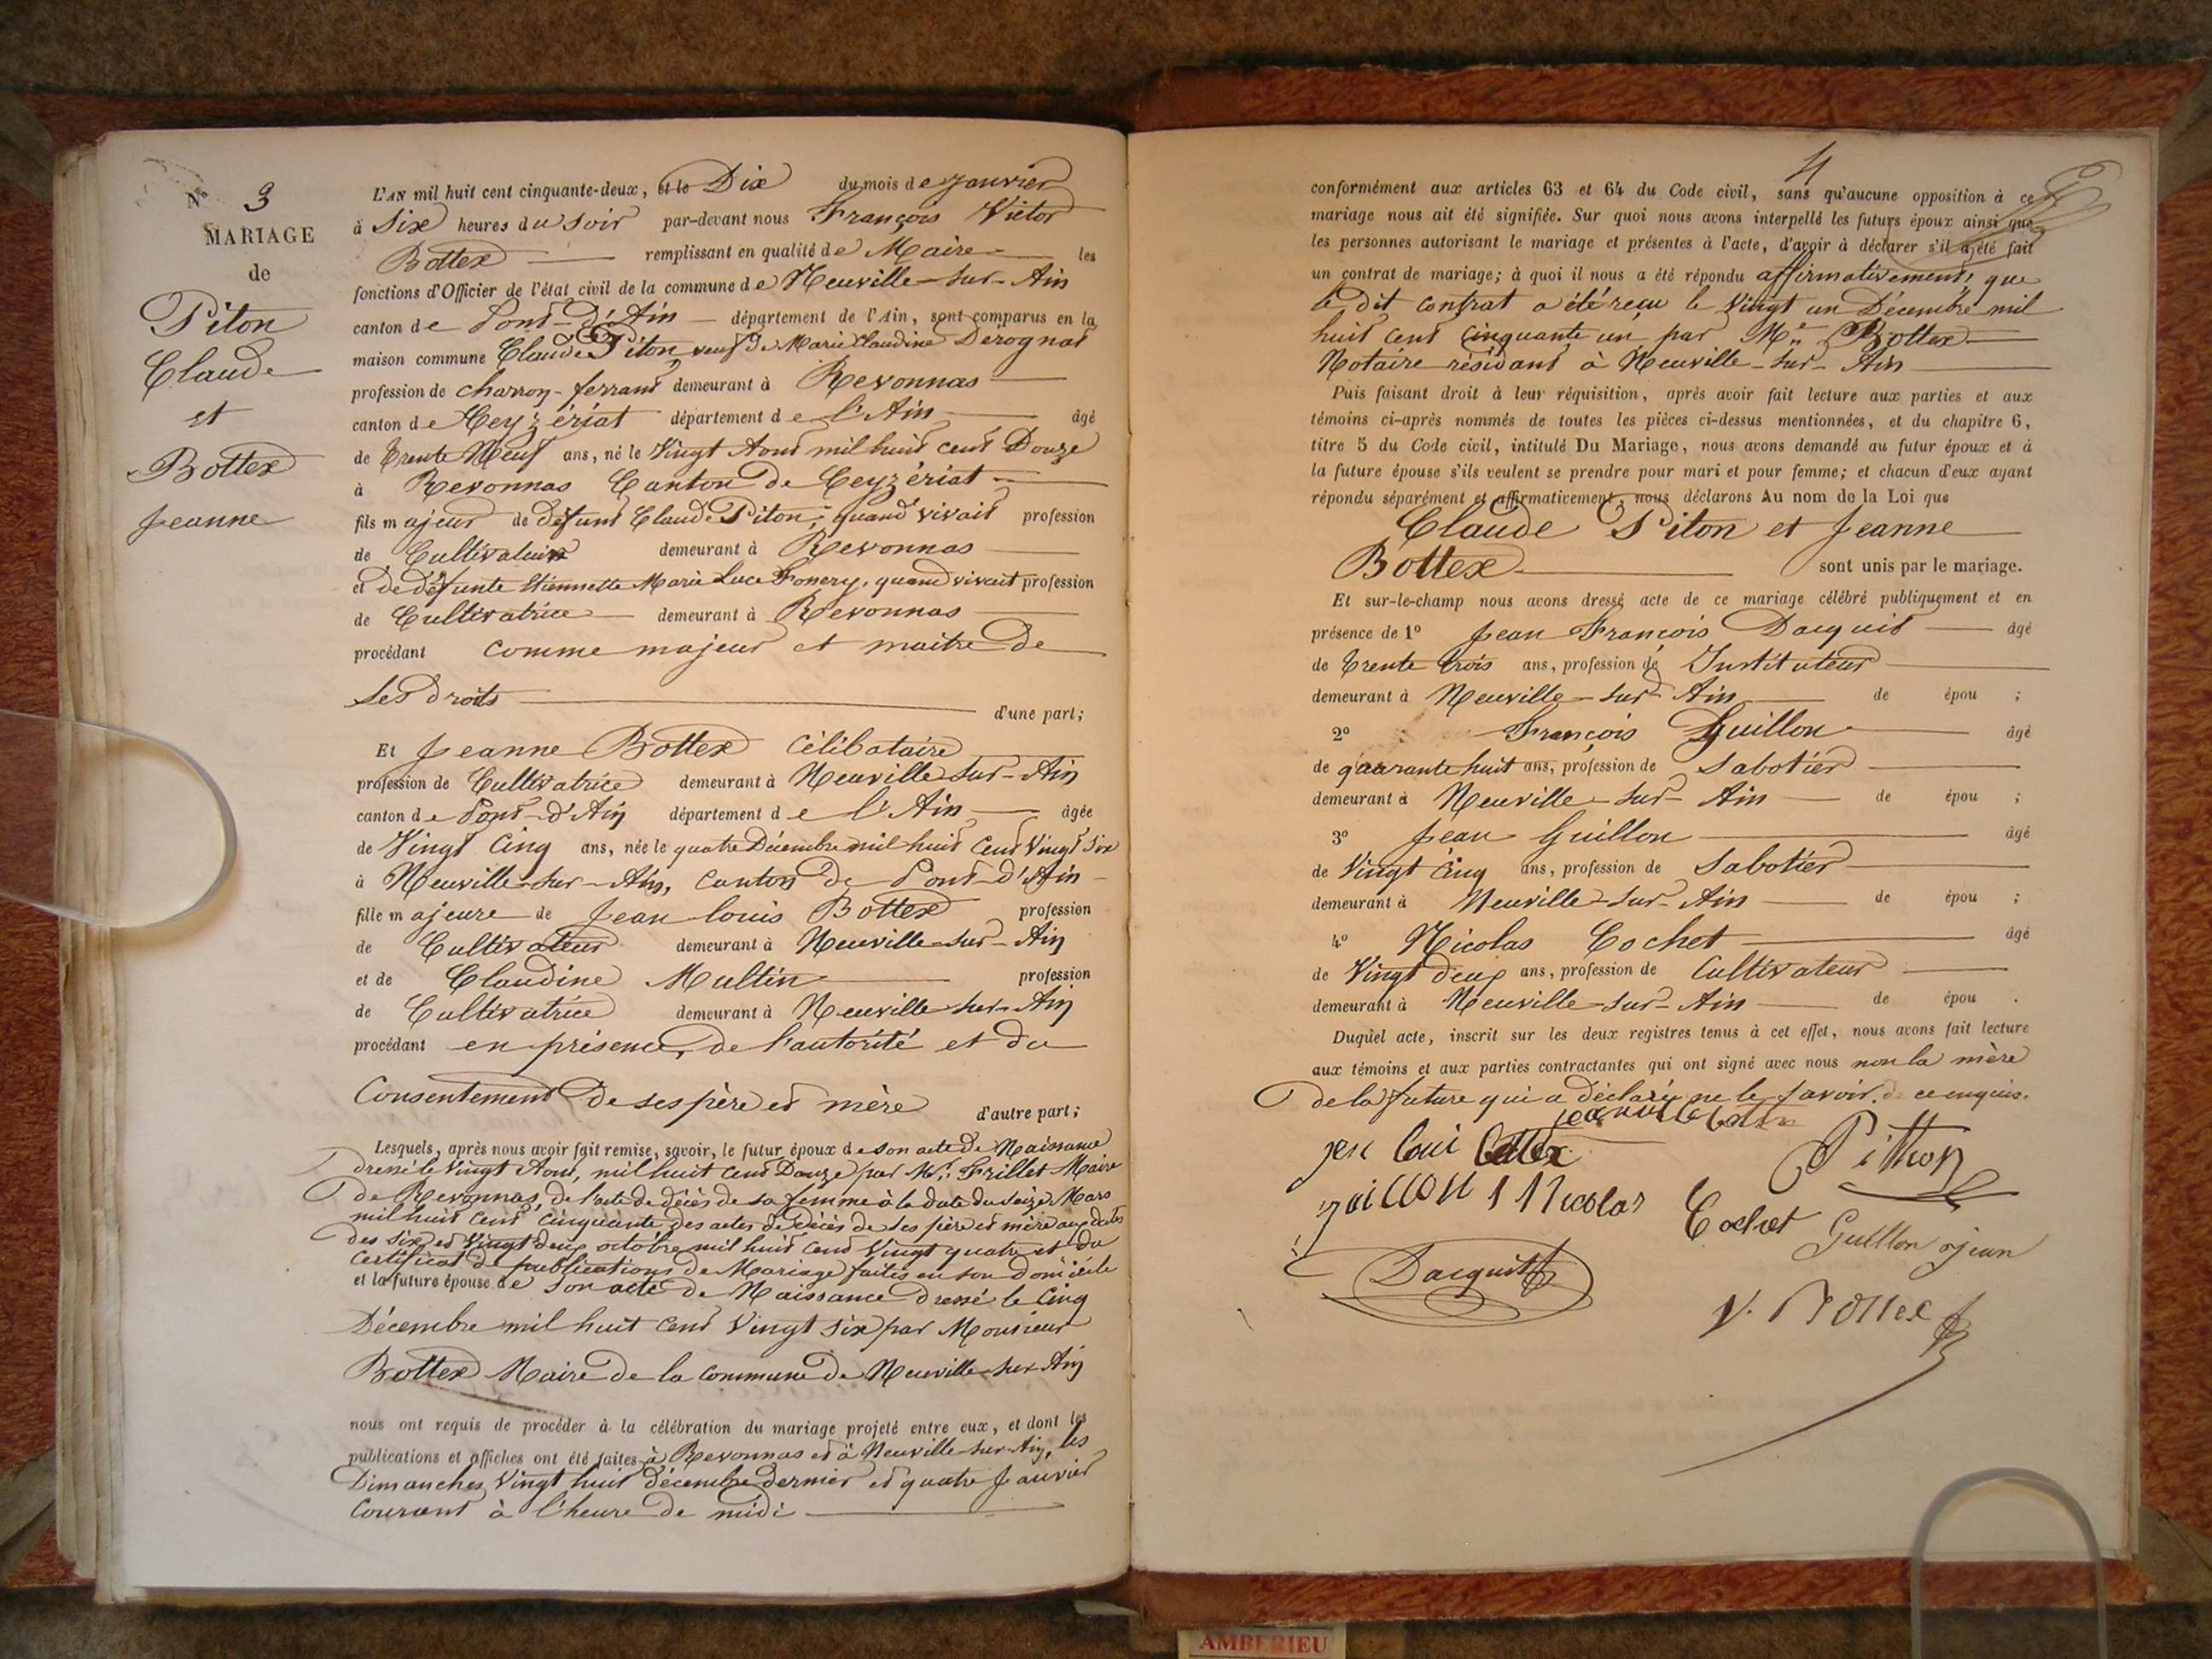 N° 3
MARIAGE
de
Piton
Claude
et
Bottex
Jeanne
L'AN mil huit cent cinquante-deux, et le Dix du mois de Janvier
à Six heures du Soir par-devant nous François Victor
Bottex remplissant en qualité de Maire les
fonctions d'Officier de l'état civil de la commune de Neuville-sur-Ain
canton de Pont-d'Ain département de l'Ain, sont comparus en la
maison commune Claude Piton, veuf de Marie Claudine Dérognat
profession de charron-ferrant demeurant à Revonnas
canton de Ceyzériat département de l'Ain âgé
de Trente Neuf ans, né le Vingt Aout mil huit cent Douze
à Revonnas Canton de Ceyzériat
fils majeur de défunt Claude Piton, quand vivait profession
de Cultivateur demeurant à Revonnas
et de défunte Etiennette Marie Luce, quand vivait profession
de Cultivatrice demeurant à Revonnas
procédant comme majeur et maître de
ses droits d'une part;
Et Jeanne Bottex célibataire
profession de Cultivatrice demeurant à Neuville sur-Ain
canton de Pont-d'Ain département de l'Ain âgée
de Vingt Cinq ans, née le quatre Décembre mil huit Cent Vingt Six
à Neuville-sur-Ain, Canton de Pont-d'Ain
fille majeure de Jean Louis Bottex profession
de Cultivateur demeurant à Neuville-sur-Ain
et de Claudine Multin profession
de Cultivatrice demeurant à Neuville sur-Ain
procédant en présence, de l'autorité et du
Consentement de ses père et mère d'autre part;
Lesquels, après nous avoir fait remise, savoir, le futur époux de son acte de Naissance
dressé le Vingt Aout, mil huit cent Douze par Mr. Frillet Maire
de Revonnas, de l'acte de décès de sa femme à la date du Seize Mars
mil huit cent cinquante, des actes de décès de ses père et mère aux dates
des six et Vingt deux octobre mil huit cent Vingt quatre et du
certificat de publications de Mariage faites en son domicile
et la future épouse de son acte de Naissance dressé le Cinq
Décembre mil huit cent Vingt six par Monsieur
Bottex Maire de la commune de Neuville-sur-Ain
nous ont requis de procéder à la célébration du mariage projeté entre eux, et dont les
publications et affiches ont été faites à Revonnas et à Neuville-sur-Ain, les
Dimanches Vingt huit décembre dernier et quatre Janvier
courant à l'heure de midi
4
conformément aux articles 63 et 64 du Code civil, sans qu'aucune opposition à ce
mariage nous ait été signifiée. Sur quoi nous avons interpellé les futurs époux ainsi que
les personnes autorisant le mariage et présentes à l'acte, d'avoir à déclarer s'il a été fait
un contrat de mariage; à quoi il nous a été répondu affirmativement, que
le dit contrat a été reçu le Vingt un Décembre mil
huit cent Cinquante un par Me. Bottex
Notaire résidant à Neuville-sur-Ain
Puis faisant droit à leur réquisition, après avoir fait lecture aux parties et aux
témoins ci-après nommés de toutes les pièces ci-dessus mentionnées, et du chapitre 6,
titre 5 du Code civil, intitulé Du Mariage, nous avons demandé au futur époux et à
la future épouse s'ils veulent se prendre pour mari et pour femme; et chacun d'eux ayant
répondu séparément et affirmativement, nous déclarons Au nom de la Loi que
Claude Piton et Jeanne
Bottex sont unis par le mariage.
Et sur-le-champ nous avons dressé acte de ce mariage célébré publiquement et en
présence de 1° Jean François Dacquit âgé
de Trente Trois ans, profession de Instituteur
demeurant à Neuville-sur-Ain de épou ;
2° François Guillon âgé
de quarante huit ans, profession de Sabotier
demeurant à Neuville-sur-Ain de épou ;
3° Jean Guillon âgé
de Vingt Cinq ans, profession de Sabotier
demeurant à Neuville-sur-Ain de épou ;
4° Nicolas Cochet âgé
de Vingt deux ans, profession de Cultivateur
demeurant à Neuville-sur-Ain de épou .
Duquel acte, inscrit sur les deux registres tenus à cet effet, nous avons fait lecture
aux témoins et aux parties contractantes qui ont signé avec nous non la mère
de la future qui a déclaré ne le savoir de ce enquis.
Pithon
Nicolas Cochet
Guillon jean
Dacquit
V. Bottex
AMBERIEU